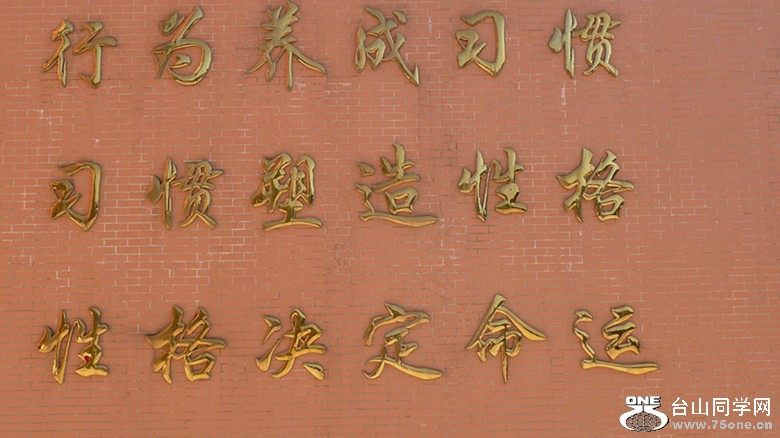 行为养成习惯
习惯塑造性格
性格决定命运
ONE
台山同学网
www.75one.cn